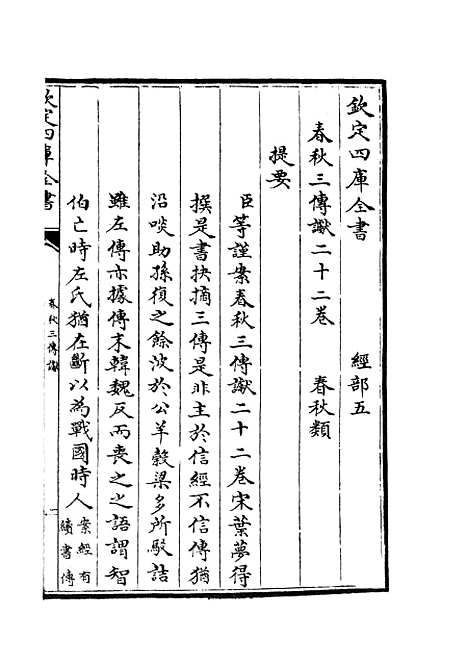 欽定四庫全書　經部五
春秋三傳讞二十二卷　春秋類
提要
臣等謹案春秋三傳讞二十二卷宋葉夢得
撰是書抉摘三傳是非主於信經不信傳猶
沿啖助孫復之餘波於公羊穀梁多所駁詰
雖左傳亦據傳末韓魏反而喪之之語謂智
伯亡時左氏猶在斷以為戰國時人案經有
續書傳
欽定四庫全書
春秋三傳讞
一